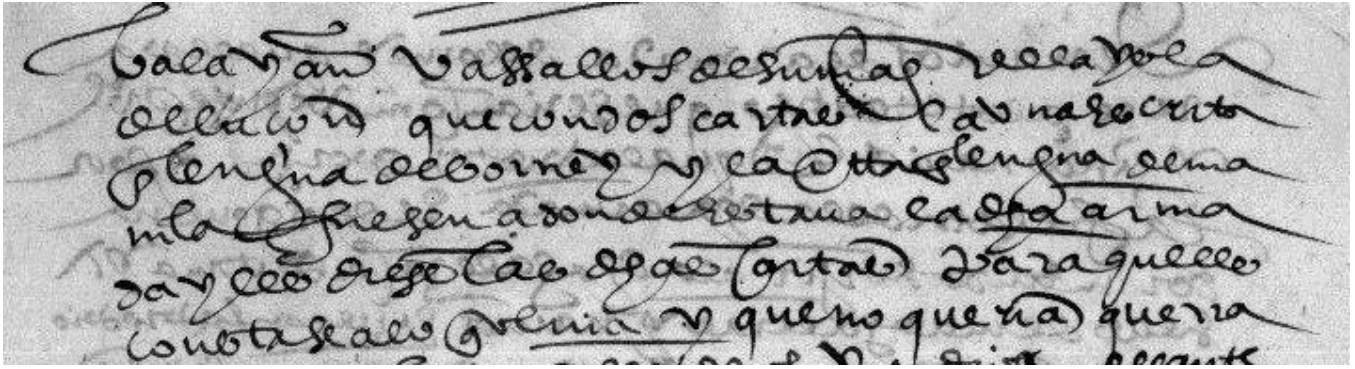 balayan vassallos de su mag rl de la ysla
de luçon que con dos cartas la una escrita
en lengua de borney y la otra en lengua de ma
nila fuesen a donde estava la dha arma
da y les diese las dhas cartas para que les
constase a lo que venia y que no queria guerra